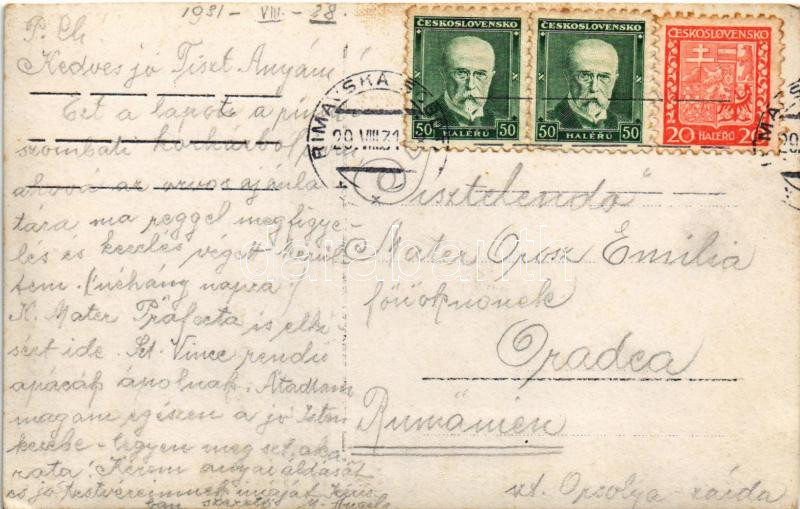 1931 - VIII. - 28.
P. Ch
Kedves jó Tiszt. Anyám!
Ezt a lapot a rima
szombati kórházból
ahová az orvos ajánla
tára ma reggel megfigye-
lés és kezelés végett kerül
tem. (néhány napra)
K. Mater Präfecta is elki
sért ide. Szt. Vince rendű
apácák ápolnak. Átadtam
magam egészen a jó Isten
kezébe - legyen meg szt. aka
rata! Kérem anyai áldását
és jó testvéreimnek imáját
ČESKOSLOVENSKO
50 HALÉŘŮ 50
ČESKOSLOVENSKO
50 HALÉŘŮ 50
ČESKOSLOVENSKO
20 HALÉŘŮ 20
RIMAVSKÁ
29.VIII.31
Tisztelendő
Mater Orosz Emilia
főnöknőnek
Oradea
Rumänien
szt. Orsolya - zárda
darabanth